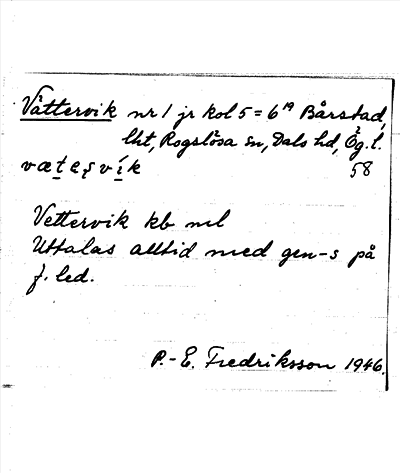 Vättervik nr 1 jr kol 5 = 6¹⁹ Bårstad,
lht, Rogslösa sn, Dals hd, Ög. l.
vætesvík 58
Vettervik kb ml
Uttalas alltid med gen-s på
f. led.
P.-E. Fredriksson 1946.